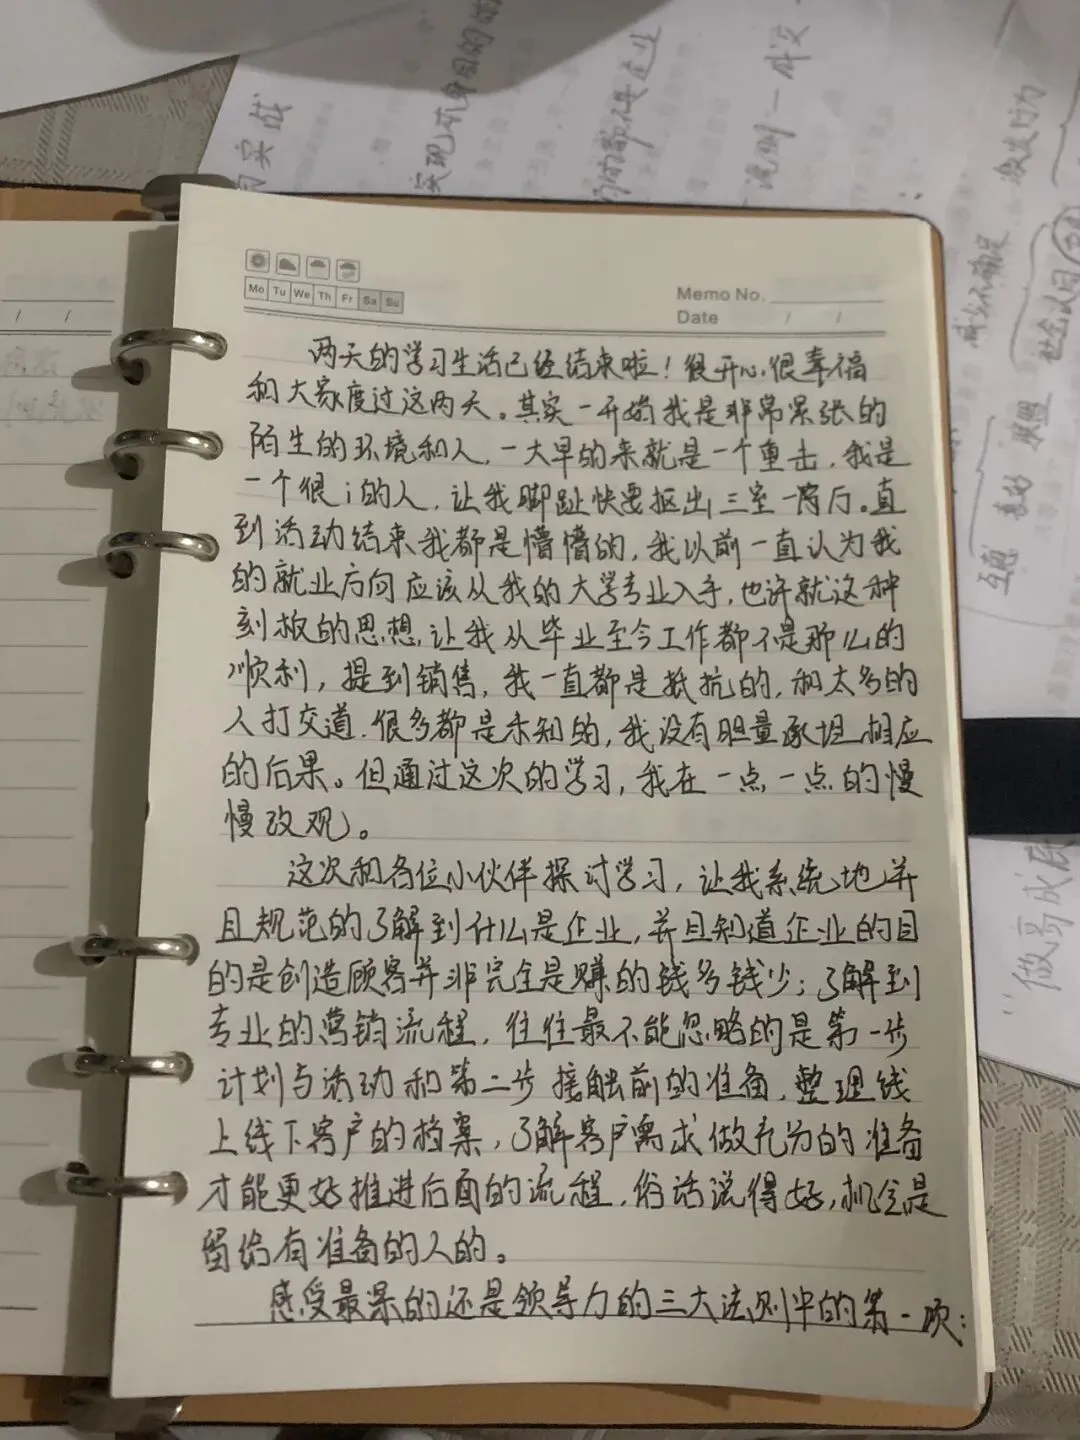 Mo Tu We Th Fr Sa Su
Memo No.
Date / /
两天的学习生活已经结束啦！很开心，很幸福
和大家度过这两天。其实一开始我是非常紧张的
陌生的环境和人，一大早的来就是一个重击，我是
一个很i的人，让我脚趾快要抠出三室一厅。直
到活动结束我都是懵懵的，我以前一直认为我
的就业方向应该从我的大学专业入手，也许就这种
刻板的思想，让我从毕业至今工作都不是那么的
顺利，提到销售，我一直都是抵抗的，和太多的
人打交道，很多都是未知的，我没有胆量承担相应
的后果。但通过这次的学习，我在一点一点的慢
慢改观。
这次和各位小伙伴探讨学习，让我系统地并
且规范的了解到什么是企业，并且知道企业的目
的是创造顾客并非完全是赚的钱多钱少；了解到
专业的营销流程，往往最不能忽略的是第一步
计划与活动和第二步接触前的准备，整理线
上线下客户的档案，了解客户需求做充分的准备
才能更好推进后面的流程，俗话说得好，机会是
留给有准备的人的。
感受最深的还是领导力的三大法则中的第一项：
的实战
实现
企业
说明一
激发行为
减少不确定
社会认同
联盟
互惠
"做高成底